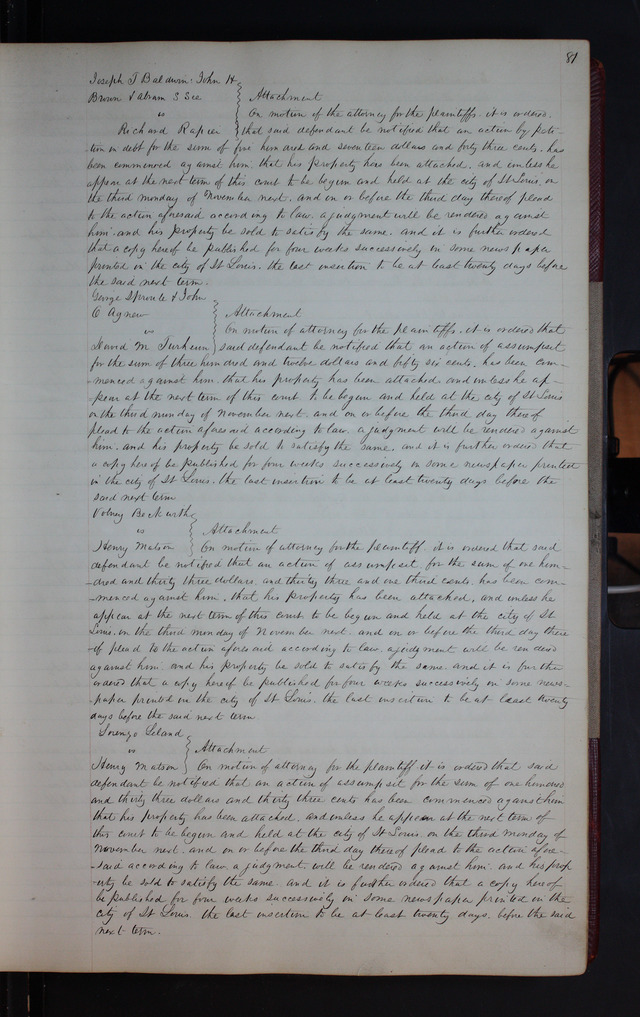 81
Joseph T Baldwin. John H
Brown & Abram S See } Attachment
vs } On motion of the attorney for the plaintiffs. it is ordered.
Richard Rapier } that said defendant be notified that an action by peti-
tion in debt for the sum of five hundred and seventeen dollars and forty three cents. has
been commenced against him, that his property has been attached. and unless he
appear at the next term of this court to be begun and held at the city of St Louis, on
the third monday of November next. and on or before the third day thereof plead
to the action aforesaid according to law. a judgment will be rendered against
him. and his property be sold to satisfy the same. and it is further ordered
that a copy hereof be published for four weeks successively in some news paper
printed in the city of St Louis. the last insertion to be at least twenty days before
the said next term.
George Sproule & John
C Agnew } Attachment
vs } On motion of attorney for the plaintiffs. it is ordered that
David M. } said defendant be notified that an action of assumpsit
for the sum of three hundred and twelve dollars and fifty six cents. has been com-
menced against him. that his property has been attached. and unless he ap-
pear at the next term of this court to be begun and held at the city of St Louis
on the third monday of November next. and on or before the third day thereof
plead to the action aforesaid according to law. a judgment will be rendered against
him. and his property be sold to satisfy the same. and it is further ordered that
a copy hereof be published for four weeks successively in some newspaper printed
in the city of St Louis. the last insertion to be at least twenty days before the
said next term
Volney Beckwith
vs } Attachment
Henry Matson } On motion of attorney for the plaintiff. it is ordered that said
defendant be notified that an action of assumpsit for the sum of one hun-
dred and thirty three dollars. and thirty three and one third cents. has been com-
-menced against him, that his property has been attached, and unless he
appear at the next term of this court to be begun and held at the city of St
Louis. on the third monday of November next. and on or before the third day there
-of plead to the action aforesaid according to law. a judgment will be rendered
against him. and his property be sold to satisfy the same. and it is further
ordered that a copy hereof be published for four weeks successively in some news-
paper printed in the city of St Louis. the last insertion to be at least twenty
days before the said next term
Lorenzo Leland
vs } Attachment
Henry Matson } On motion of attorney for the plaintiff. it is ordered that said
defendant be notified that an action of assumpsit for the sum of one hundred
and thirty three dollars and thirty three cents has been commenced against him
that his property has been attached. and unless he appear at the next term of
this court to be begun and held at the city of St Louis. on the third monday of
November next. and on or before the third day thereof plead to the action afore-
-said according to law. a judgment. will be rendered against him. and his prop
-erty be sold to satisfy the same. and it is further ordered that a copy hereof
be published for four weeks successively in some news paper printed in the
city of St Louis. the last insertion to be at least twenty days. before the said
next term.